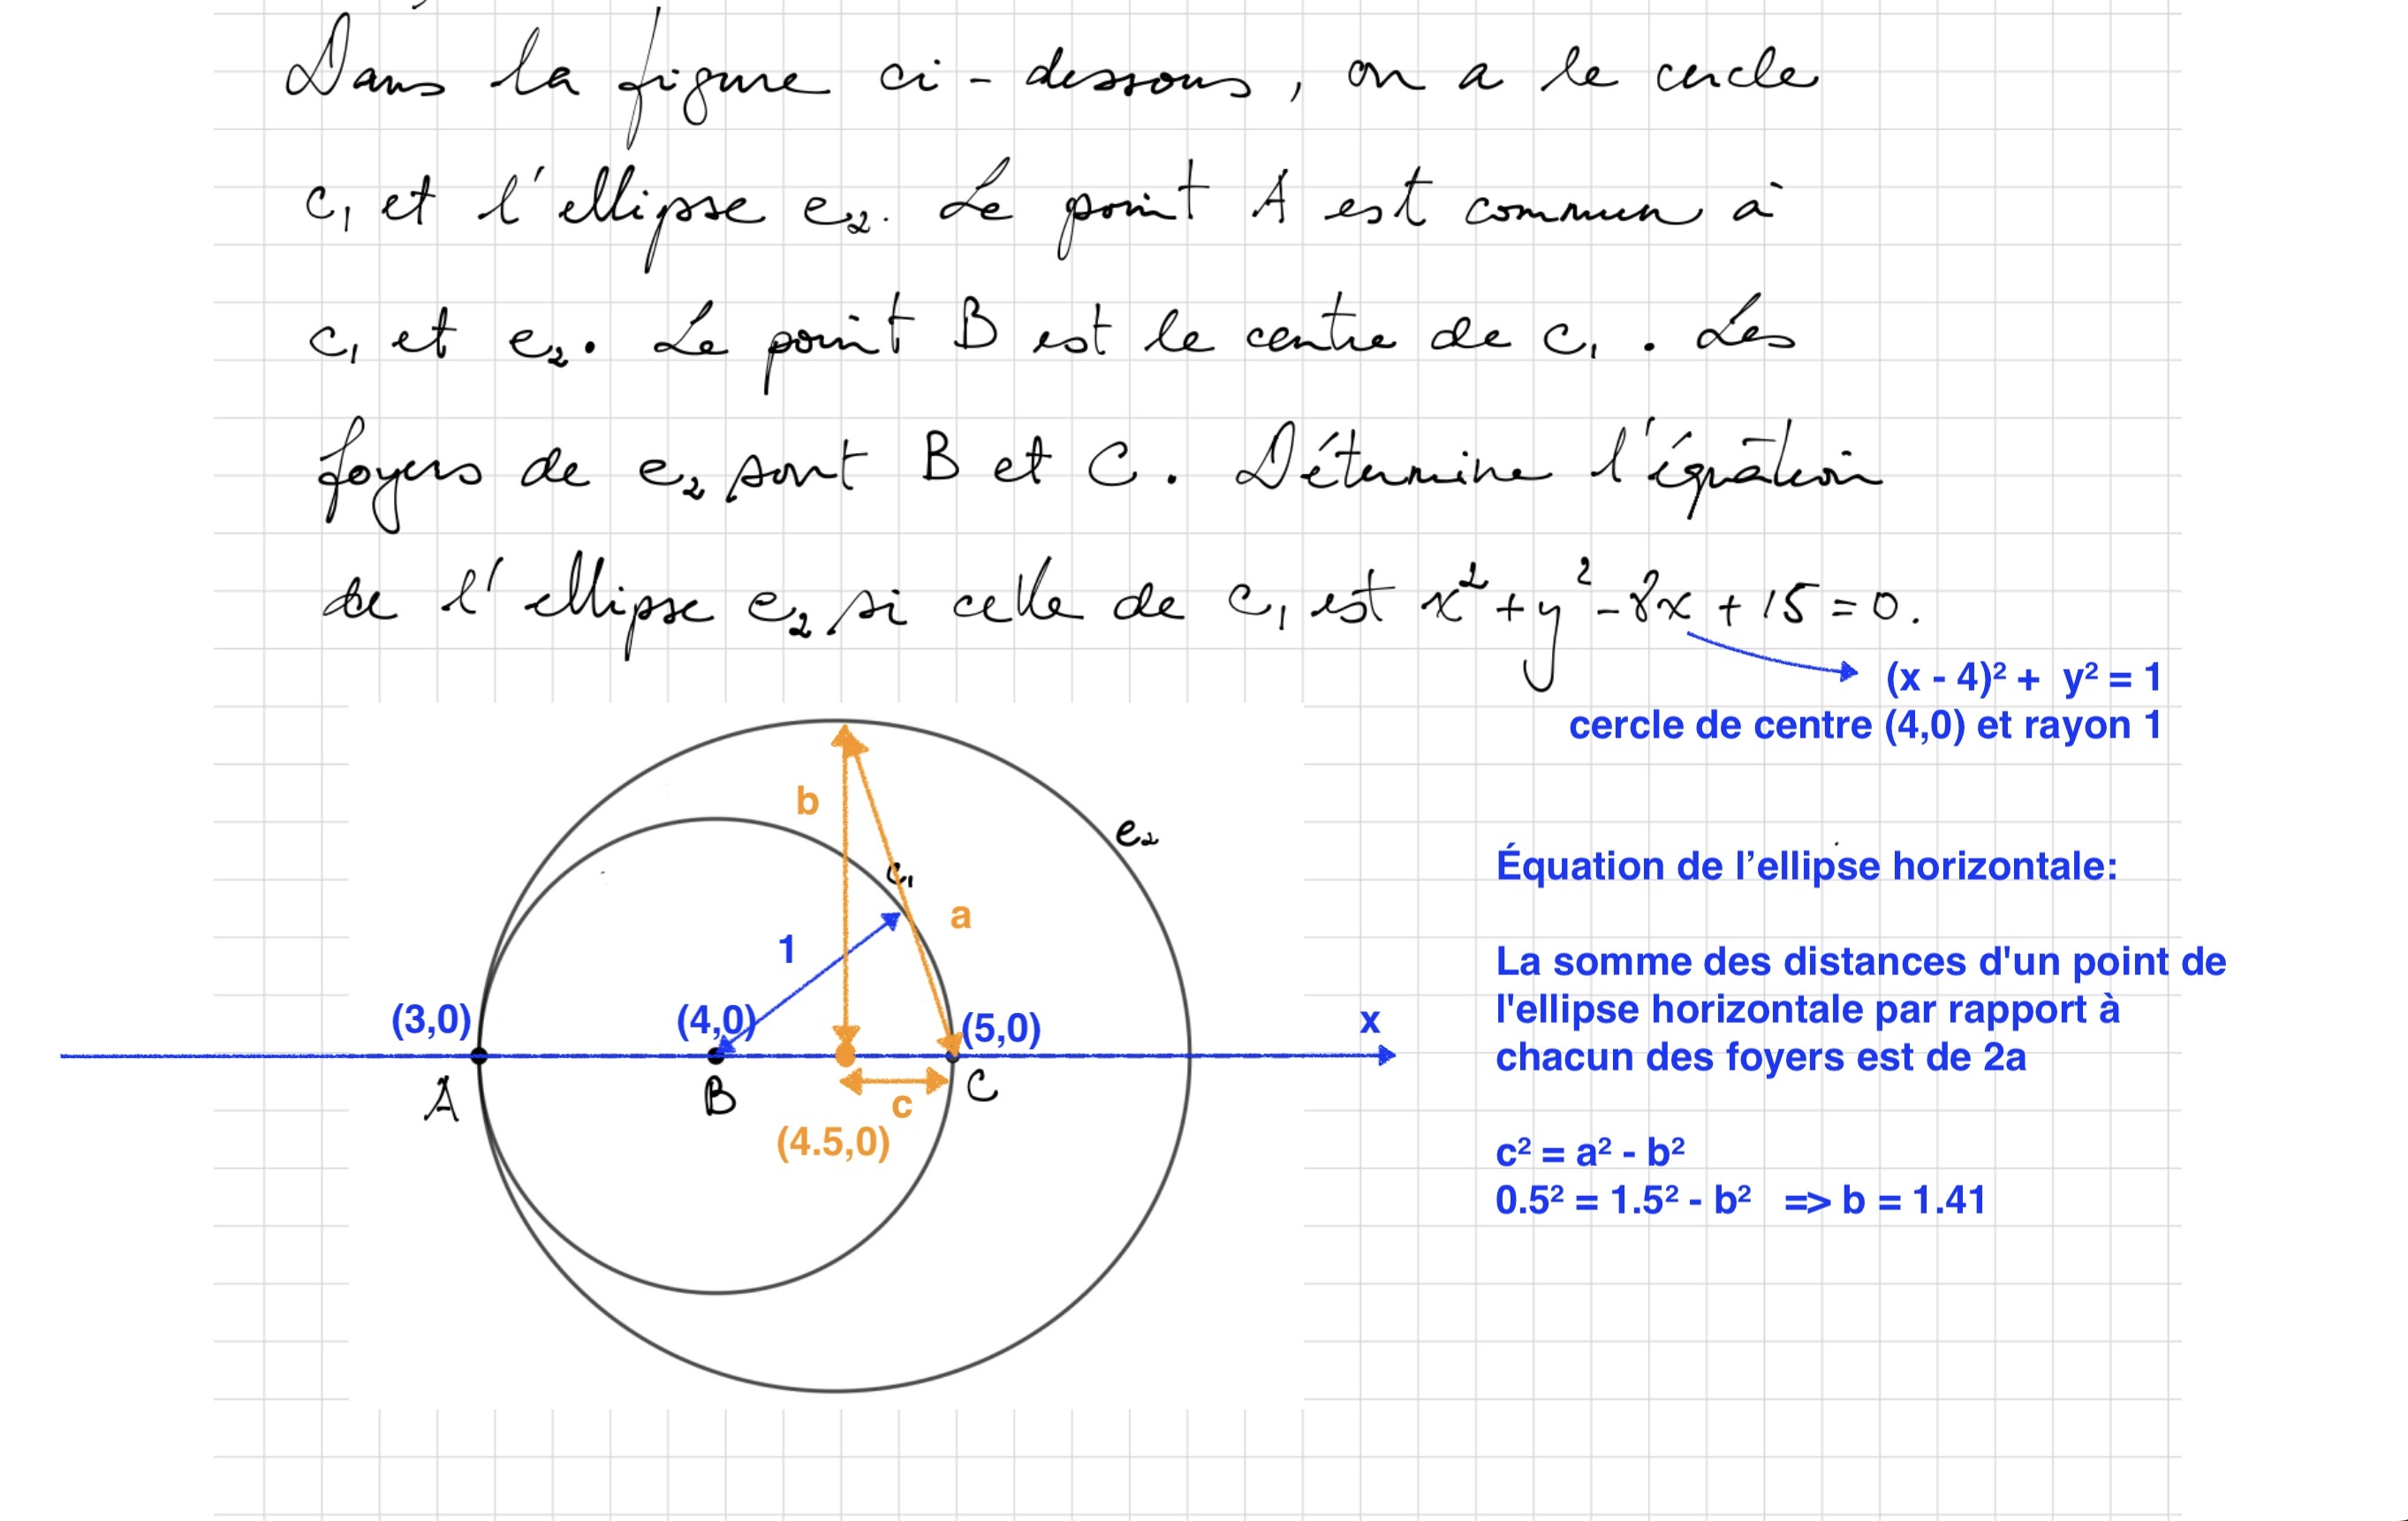 Dans la figure ci-dessous, on a le cercle
c₁ et l'ellipse e₂. Le point A est commun à
c₁ et e₂. Le point B est le centre de c₁. Les
foyers de e₂ sont B et C. Détermine l'équation
de l'ellipse e₂ si celle de c₁ est x²+y²-8x+15=0.
(x - 4)² + y² = 1
cercle de centre (4,0) et rayon 1
b
e₂
c₁
Équation de l'ellipse horizontale:
a
1
La somme des distances d'un point de
l'ellipse horizontale par rapport à
chacun des foyers est de 2a
(3,0) (4,0) (5,0) x
A B C
c
(4.5,0)
c² = a² - b²
0.5² = 1.5² - b² => b = 1.41